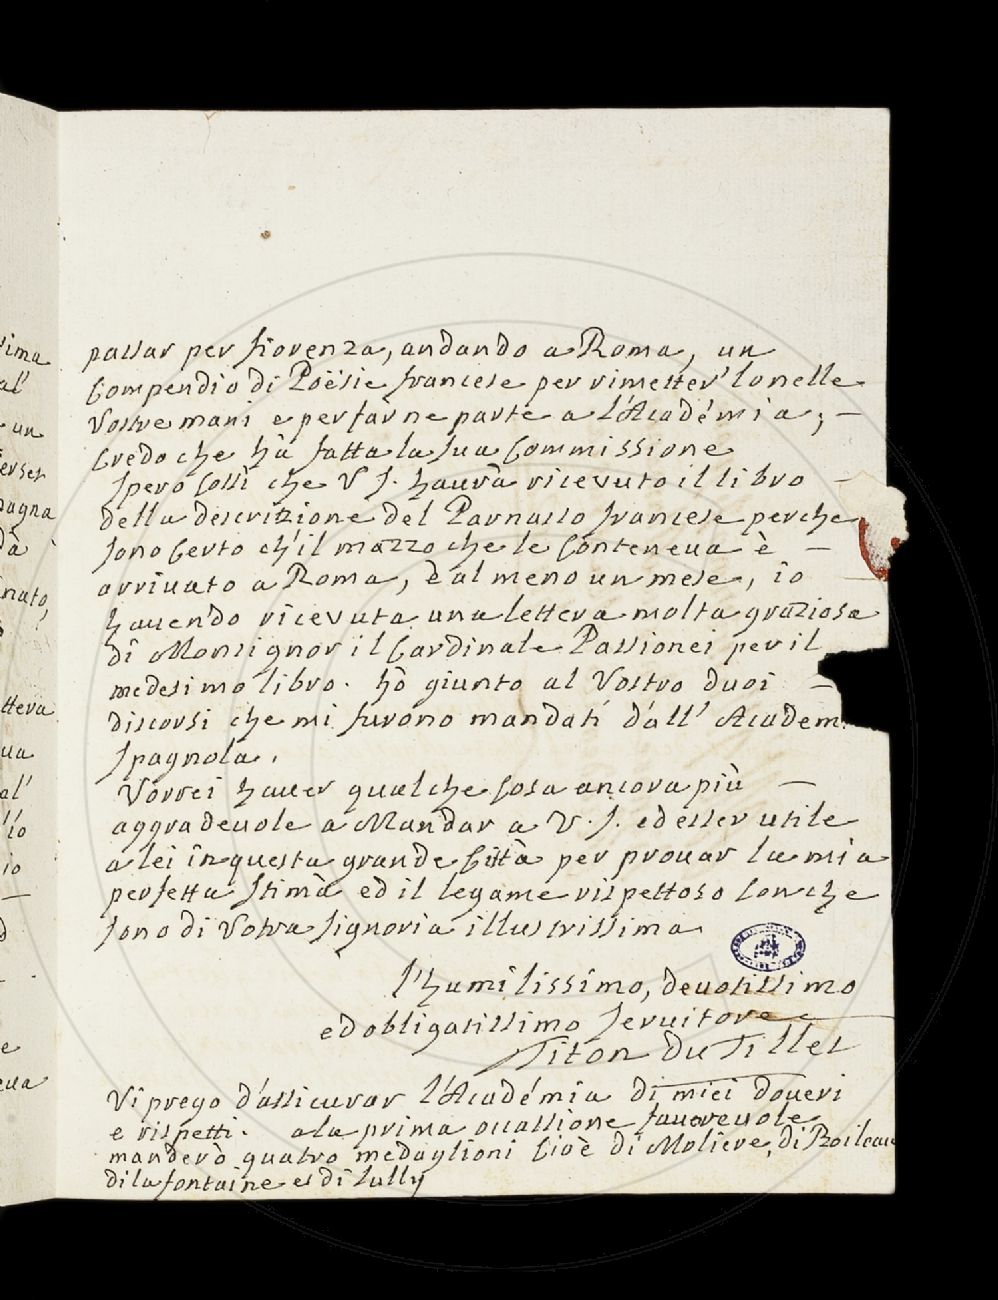 passar per fiorenza, andando a Roma, un
Compendio di Poësie francese per rimetter' lo nelle
Vostre mani e per farne parte a l'Académia; –
Credo che hà fatta la sua Commissione
spero cossì che V S. haurà ricevuto il libro –
della descrizione del Parnasso francese perche
sono Certo ch'il mazzo che le Conteneua è –
arrivato a Roma, è al meno un mese, io
hauendo ricevuta una lettera molta graziosa
di Monsignor il Cardinale Passionei per il
medesimo libro. hò giunto al Vostro duoi –
discorsi che mi furono mandati dall' Academ
spagnola.
Vorrei hauer qualche cosa ancora più –
aggradeuole a Mandar a V. S. ed esser utile
a lei in questa grande Città per prouar la mia
perfetta stimà ed il legame rispettoso con che
sono di Vostra signoria illustrissima
l'humilissimo, deuotissimo
ed obligatissimo seruitore
Titon Du Tillet
Vi prego d'assicurar l'Académia di miei doueri
e rispetti. a la prima occassione fauoreuole
manderò quatro medaglioni Cioè di Moliere, di Boileau
di la fontaine et di Lully
sima
al'
un
erser
pagna
dà
nato,
ttera
ua
al'
llo
io
e
eua